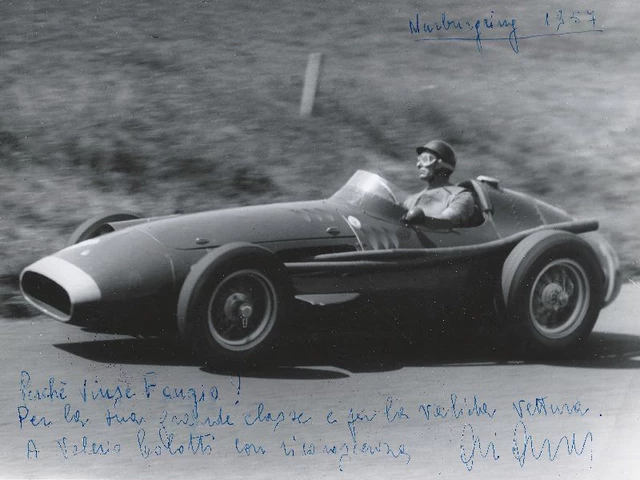 Nurburgring 1957
Perchè vinse Fangio?
Per la sua grande classe e per la valida vettura.
A Valerio Colotti con riconoscenza